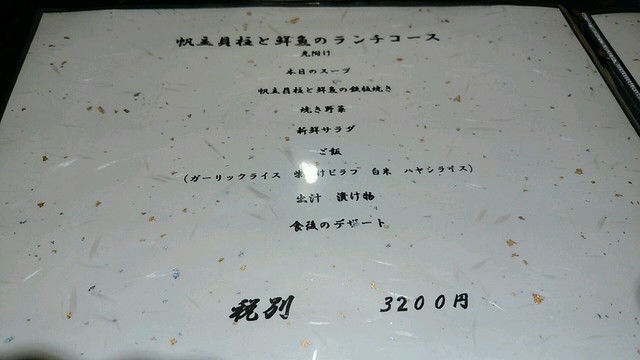 帆立貝柱と鮮魚のランチコース
先附け
本日のスープ
帆立貝柱と鮮魚の鉄板焼き
焼き野菜
新鮮サラダ
ご飯
(ガーリックライス 味付けピラフ 白米 ハヤシライス)
出汁 漬け物
食後のデザート
税別 3200円